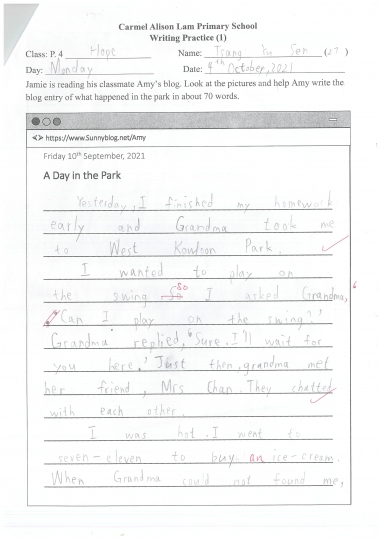 Carmel Alison Lam Primary School
Writing Practice (1)
Class: P. 4 Hope Name: Tsang Yu Ser (27)
Day: Monday Date: 4th October, 2021
Jamie is reading his classmate Amy's blog. Look at the pictures and help Amy write the
blog entry of what happened in the park in about 70 words.
<> https://www.Sunnyblog.net/Amy
Friday 10th September, 2021
A Day in the Park
Yesterday, I finished my homework
early and Grandma took me
to West Kowloon Park.
I wanted to play on
the swing so I asked Grandma,
"Can I play on the swing?'
Grandma replied, "Sure. I'll wait for
you here.' Just then, grandma met
her friend, Mrs Chan. They chatted
with each other.
I was hot. I went to
seven-eleven to buy an ice-cream.
When Grandma could not found me,